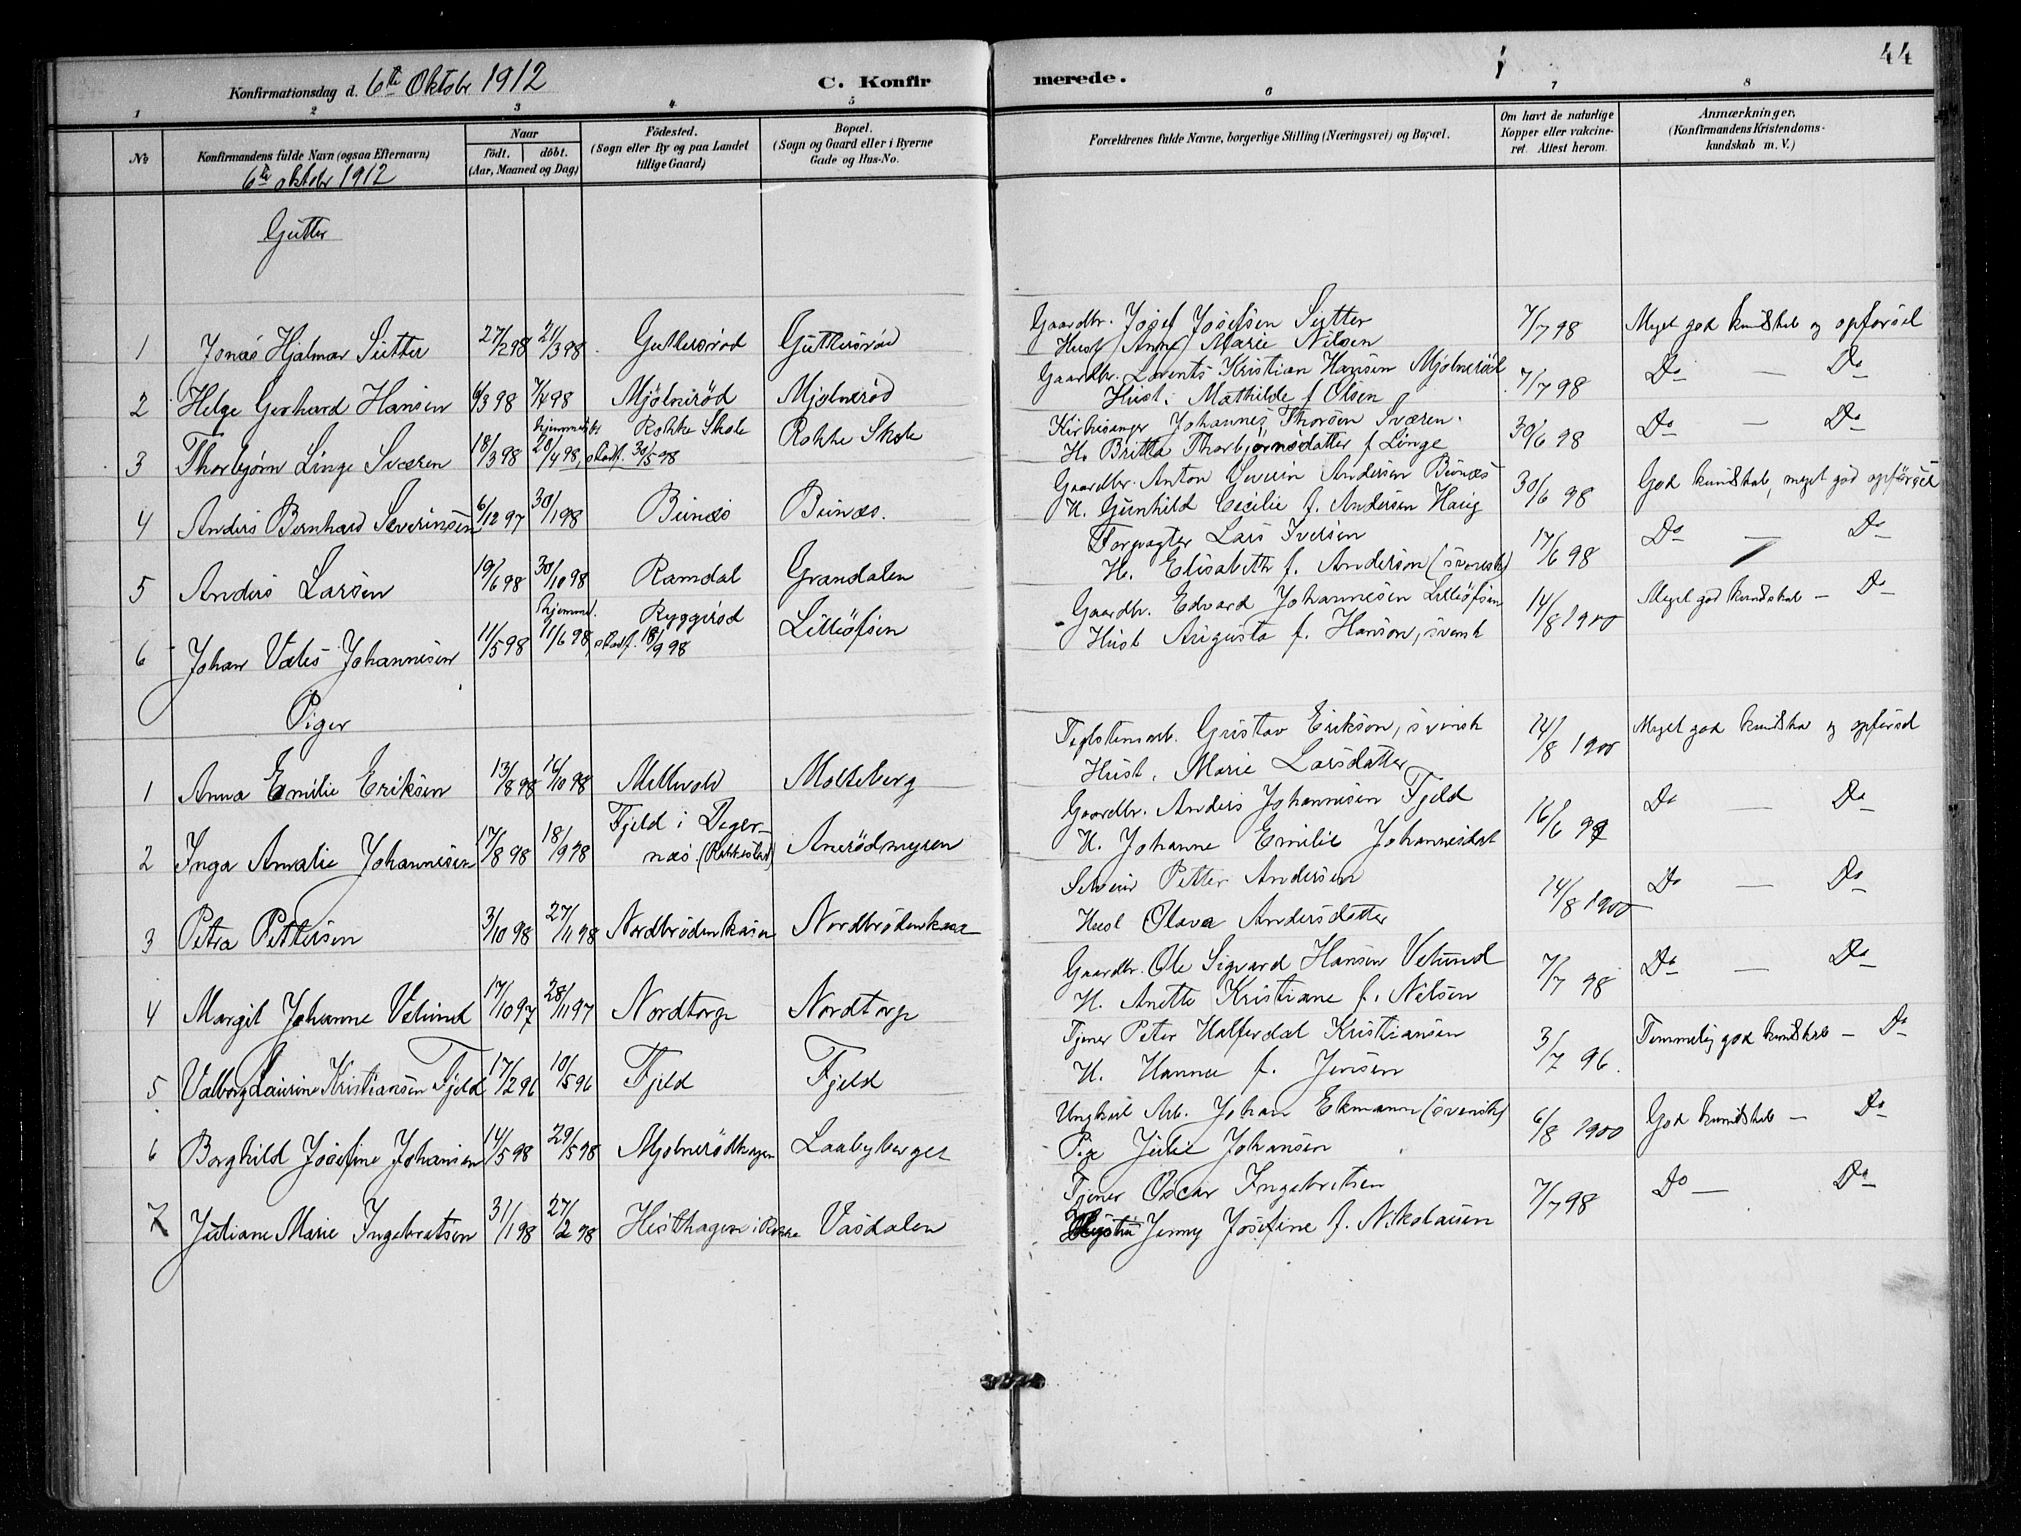 44
Konfirmationsdag d. 6te Oktobr 1912
C. Konfirmerede.
1 2 3 4 5 6 7 8
No
Konfirmandens fulde Navn (ogsaa Efternavn)
Naar
födt. döbt.
(Aar, Maaned og Dag)
Födested.
(Sogn eller By og paa Landet
tillige Gaard)
Bopæl.
(Sogn og Gaard eller i Byerne
Gade og Hus-No.
Forældrenes fulde Navne, borgerlige Stilling (Næringsvei) og Bopæl.
Om havt de naturlige
Kopper eller vakcine-
ret. Attest herom.
Anmærkninger.
(Konfirmandens Kristendoms-
kundskab m. V.)
6te oktober 1912
Gutter
1 Jonas Hjalmar Sutter 27/2 98 21/3 98 Guttersröd Guttersröd Gaardbr. Josef Josefsen Sutter 7/7 98 Meget god kundskab og opførsel
Hust. Anne Marie Nilsen
2 Helge Gerhard Hansen 6/3 98 7/4 98 Mjölneröd Mjölneröd Gaardbr. Lorents Kristian Hansen Mjölneröd 7/7 98 Do — Do
Hust. Mathilde f Olsen
3 Thorbjørn Linge Sværen 18/3 98 hjemmedøbt 28/4 98, stadf. 30/5 98 Rokke Skole Rokke Skole Kirkesanger Johannes Thorsen Sværen. 30/6 98 Do — Do
H. Britta Thorbjørnsdatter f Linge
4 Anders Bernhard Severinsen 6/12 97 30/1 98 Bunæs Bunæs. Gaardbr. Anton Severin Andersen Bunæs 30/6 98 God kundskab, meget god opförsel
H. Gunhild Cecilie f. Andersen Haug
5 Anders Larsen 19/6 98 30/10 98 Ramdal Grandalen Torvagter Lars Iversen 17/6 98 Do — Do
H. Elisabeth f. Anderson (svensk)
6 Johan Vales Johannesen 11/5 98 hjemmed. 11/6 98, stadf. 18/9 98 Ryggeröd Lilliöfsen Gaardbr. Edvard Johannesen Lilliöfsen 14/8 1900 Meget god kundskab — Do
Hust Augusta f. Hanson, svensk
Piger
1 Anna Emilie Eriksen 13/8 98 16/10 98 Mellvold Molteberg Teglstensarb. Gustav Erikson, svensk 14/8 1900 Meget god kundskab og opførsel
Hust. Marie Larsdatter
2 Inga Amalie Johannesen 17/8 98 18/9 98 Fjeld i Deger-
næs (Rakkestad) Anerödmyren Gaardbr. Anders Johannesen Fjeld 16/6 99 Do — Do
H. Johanne Emilie Johannesdat
3 Petra Pettersen 3/10 98 27/11 98 Nordbrödenkasa Nordbrödenkasa Petter Andersen 14/8 1900 Do — Do
Hust Olava Andersdatter
4 Margit Johanne Velund 17/10 97 28/11 97 Nordtorp Nordtorp Gaardbr. Ole Sigvard Hansen Velund 7/7 98 Do — Do
H. Anette Kristiane f. Nilsen
5 Valborg Laurine Kristiansen Fjeld 17/2 96 10/5 96 Fjeld Fjeld Tjener Peter Halferdal Kristiansen 3/7 96. Temmelig god kundskab — Do
H. Hanne f. Jensen
6 Borghild Josefine Johansen 14/5 98 29/5 98 Mjölnerödhagen Laabyberget Ungkarl Arb. Johan Ekmann (svensk) 6/8 1900 God kundskab — Do
Pige Julie Johansen
7 Juliane Marie Ingebretsen 31/1 98 27/2 98 Hesthagen i Rokke Vasdalen Tjener Oscar Ingebretsen 7/7 98 Do — Do
Jenny Josefine f. Nikolaisen